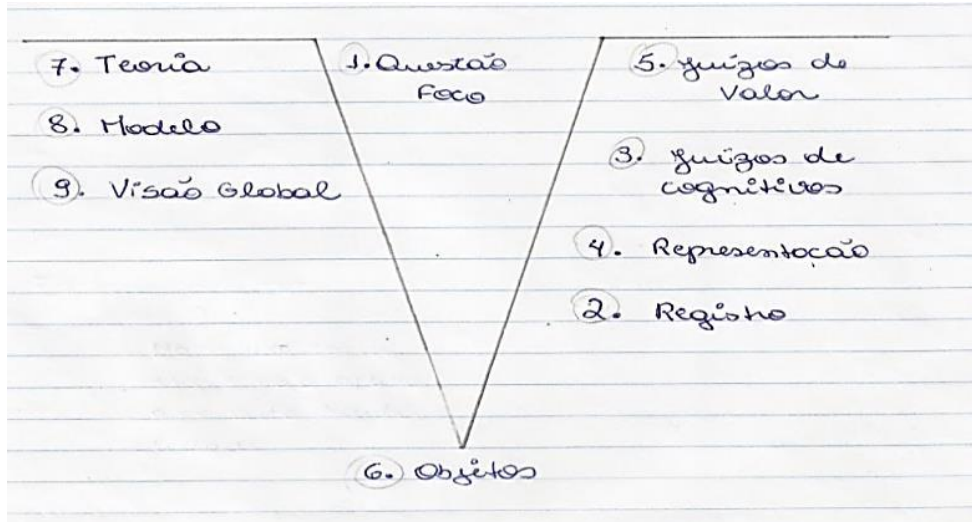 7. Teoria
8. Modelo
9. Visão Global
1. Questão
Foco
5. Juízos de
Valor
3. Juízos de
cognitivos
4. Representação
2. Registro
6. Objetos